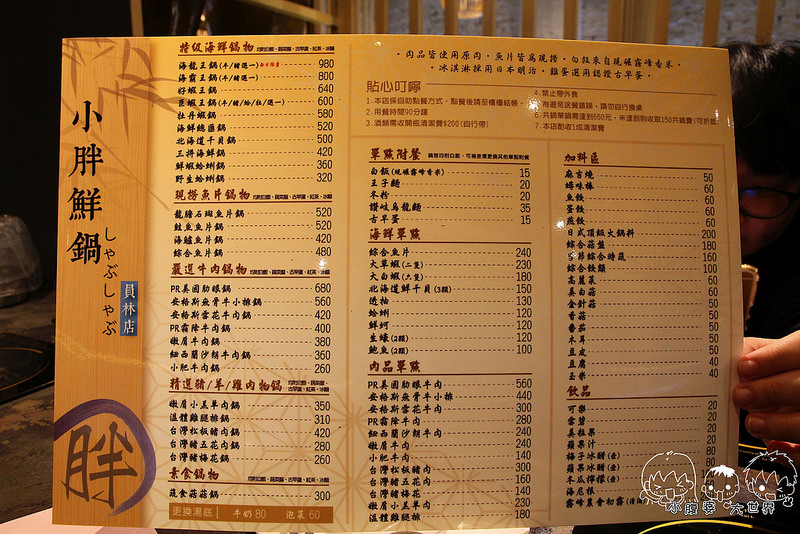 小胖鮮鍋
しゃぶしゃぶ
員林店
胖
特級海鮮鍋物
海龍王鍋(牛/豬選一) 980
海霸王鍋(牛/豬選一) 800
好蝦王鍋 640
巨蝦王鍋 600
牡丹蝦鍋 580
海鮮總匯鍋 520
北海道干貝鍋 500
三拼海鮮鍋 420
鮮蝦蛤蜊鍋 360
野生蛤蜊鍋 320
現撈魚片鍋物
龍膽石斑魚片鍋 520
鮭魚魚片鍋 520
海鱸魚片鍋 420
綜合魚片鍋 480
嚴選牛肉鍋物
PR美國肋眼鍋 680
安格斯無骨牛小排鍋 560
安格斯雪花牛肉鍋 420
PR霜降牛肉鍋 400
嫩肩牛肉鍋 380
紐西蘭沙朗牛肉鍋 360
小肥牛肉鍋 260
精選豬/羊/雞肉物鍋
嫩肩小羔羊肉鍋 350
溫體雞腿排鍋 310
台灣松板豬肉鍋 420
台灣豬五花肉鍋 280
台灣豬梅花鍋 260
素食鍋物
蔬食菇菇鍋 300
更換湯底 牛奶 80 泡菜 60
・肉品皆使用原肉・魚片皆為現撈・白飯來自現碾霧峰香米・
・冰淇淋採用日本明治・雞蛋選用認證古早蛋・
貼心叮嚀
1.本店採自助點餐方式，點餐後請至櫃檯結帳。
2.用餐時間90分鐘
3.酒類需收開瓶清潔費$200(自行帶)
4.禁止帶外食
5.為避免送餐錯誤，請勿自行換桌
6.共鍋單鍋需達到650元，未達到則收取150共鍋費(可折抵)
7.本店酌收1成清潔費
單點附餐
白飯(現碾霧峰香米) 15
王子麵 20
冬粉 20
讚岐烏龍麵 35
古早蛋 15
海鮮單點
綜合魚片 240
大草蝦(二隻) 230
大白蝦(六隻) 180
北海道鮮干貝(3顆) 150
透抽 130
蛤蜊 120
鮮蚵 120
生蠔(2顆) 120
鮑魚(2顆) 100
肉品單點
PR美國肋眼牛肉 560
安格斯無骨牛小排 440
安格斯雪花牛肉 300
PR霜降牛肉 280
紐西蘭沙朗牛肉 240
嫩肩牛肉 240
小肥牛肉 140
台灣松板豬肉 300
台灣豬五花肉 160
台灣豬梅花 140
嫩肩小羔羊肉 230
溫體雞腿排 180
加料區
麻吉燒 50
蟳味棒 60
魚餃 60
蛋餃 60
燕餃 60
日式頂級火鍋料 200
綜合菇盤 180
季節綜合時蔬 160
綜合餃類 100
高麗菜 60
美白菇 60
金針菇 50
香菇 50
番茄 50
木耳 50
豆皮 50
豆腐 40
玉米 40
飲品
可樂 20
雪碧 20
美粒果 20
蘋果汁 20
梅子冰醋(壺) 80
蘋果冰醋(壺)
冬瓜檸檬(壺)
海尼根
霧峰農會初霧
小腹婆 大世界